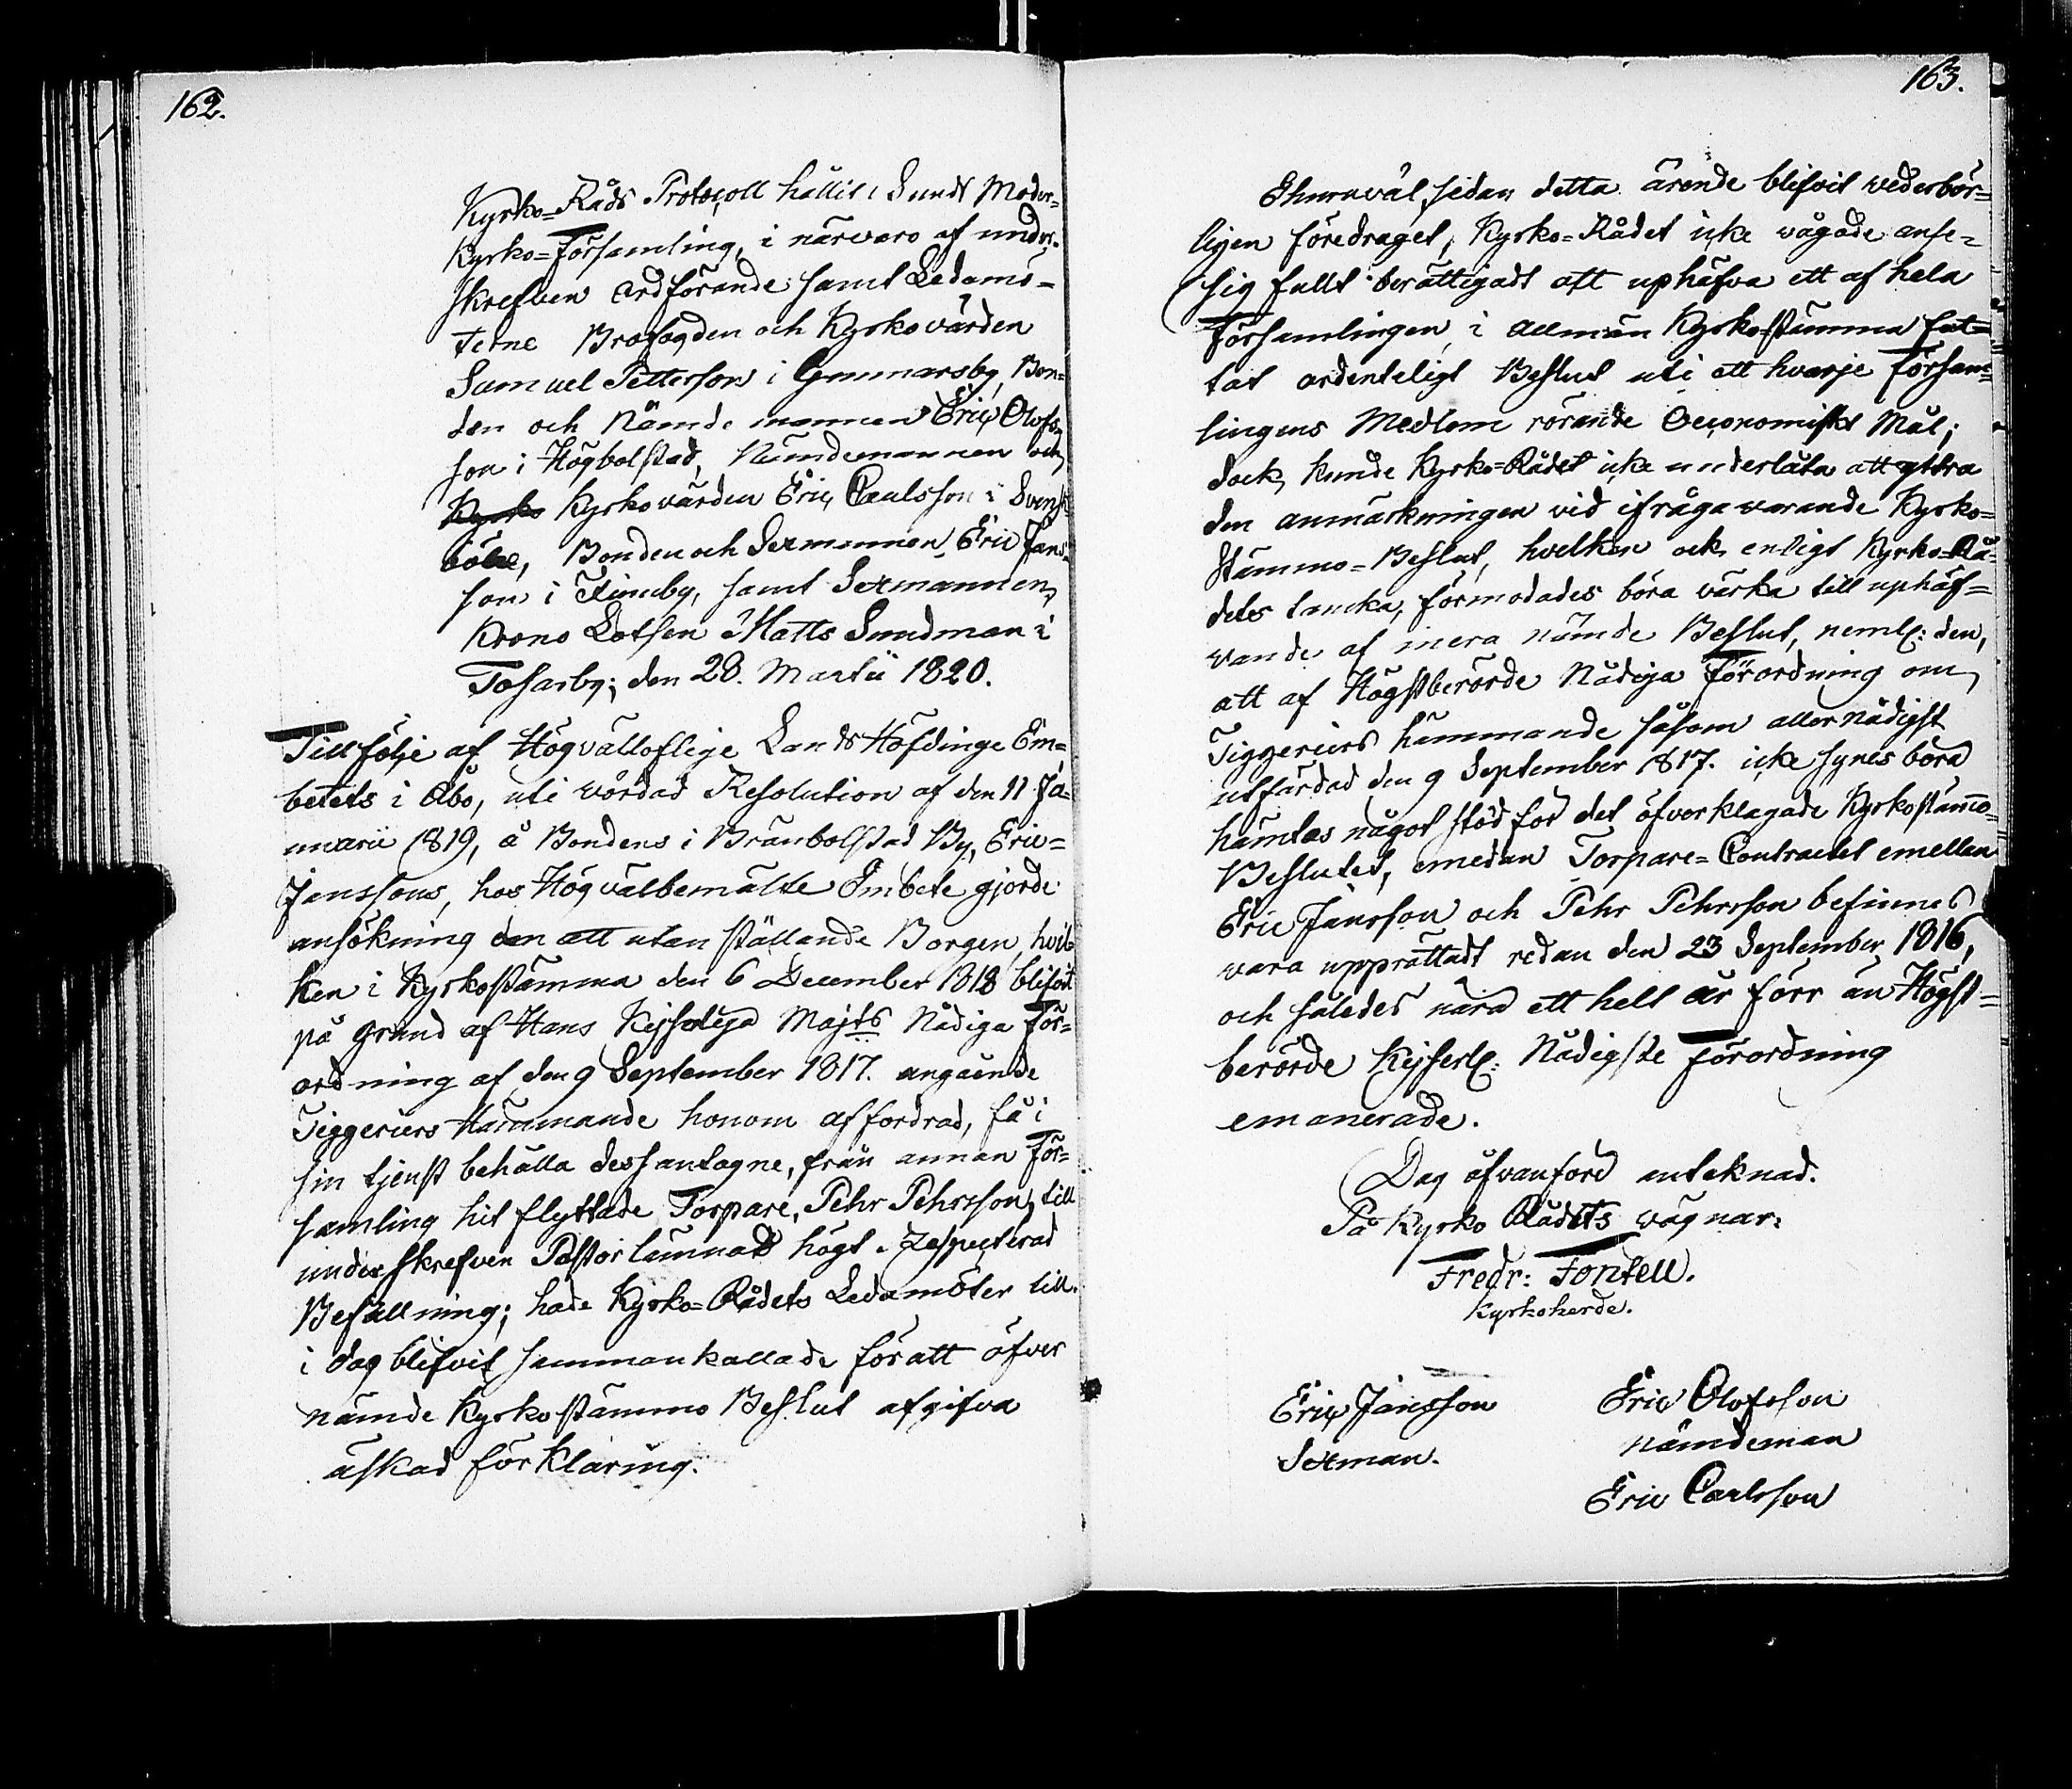 162.
Kyrko=Råds Protocoll hållit i Sunds Moder=
Kyrko=Församling, i närvaro af under=
skrefven Ordförande samt Ledamö=
terne Brofogden och Kyrkovärden
Samuel Petterson i Gunnarsby, Bon=
den och Nämndemannen Eric Olofs=
son i Högbolstad, Nämndemannen och
Kyrko Kyrkovärden Eric Carlsson i Svensk=
böle, Bonden och Sexmannen Eric Jans=
son i Finnby, samt Sexmannen,
Krono Lotsen Matts Sundman i
Tosarby; den 28. Martii 1820.
Till följe af Högvälloflige LandsHöfdinge Em=
betets i Åbo, uti vördad Resolution af den 11 Ja=
nuarii 1819, å Bondens i Bränbolstad By, Eric
Janssons, hos Högvälbemälte Embete gjorde
ansökning om att utan ställande Borgen, hvil=
ken i Kyrkostämma den 6 December 1818 blifvit
på grund af Hans Kejserliga Majts Nådiga För=
ordning af den 9 September 1817. angående
Tiggeriers Hämmande honom affordrad, få i
sin tjenst behålla dess antagne, från annan För=
samling hit flyttade Torpare, Pehr Pehrsson, till
underskrefven Pastor lämnade högt respecterad
Befallning; hade Kyrko=Rådets Ledamöter till
i dag blifvit sammankallade för att öfver
nämde Kyrkostämmo Beslut afgifva
äskad förklaring.
163.
Ehuruväl, sedan detta ärende blifvit wederbör=
ligen föredraget, Kyrko=Rådet icke vågade anse=
sig fullt berättigadt att uphäfva ett af hela
Församlingen, i allmän Kyrko=stämma fat=
tat ordenteligt Beslut uti ett hvarje Försam=
lingens Medlem rörande Oeconomiskt Mål;
dock kunde Kyrko=Rådet icke underlåta att yttra
den anmärkningen vid ifrågavarande Kyrko=
Stämmo=Beslut, hvilken ock enligt Kyrko=Rå=
dets tanka, förmodades böra värka till uphäf=
vande af mera nämde Beslut, neml: den,
att af Högstberörde Nådiga Förordning om
Tiggeriers hämmande såsom allernådigst
utfärdad den 9 September 1817. icke synes böra
hämtas något stöd för det öfverklagade Kyrkostämmo=
Beslutet, emedan Torpare=Contractet emellan
Eric Jansson och Pehr Pehrsson befinnes
vara upprättadt redan den 23 September 1816,
och således nära ett helt år förr än Högst=
berörde Kejserl: Nådigste Förordning
emanerade.
Dag ofvanförd anteknad.
På Kyrko Rådets vägnar:
Fredr: Fontell.
Kyrkoherde.
Eric Jansson
Sexman.
Eric Olofsson
nämdeman
Eric Carlsson